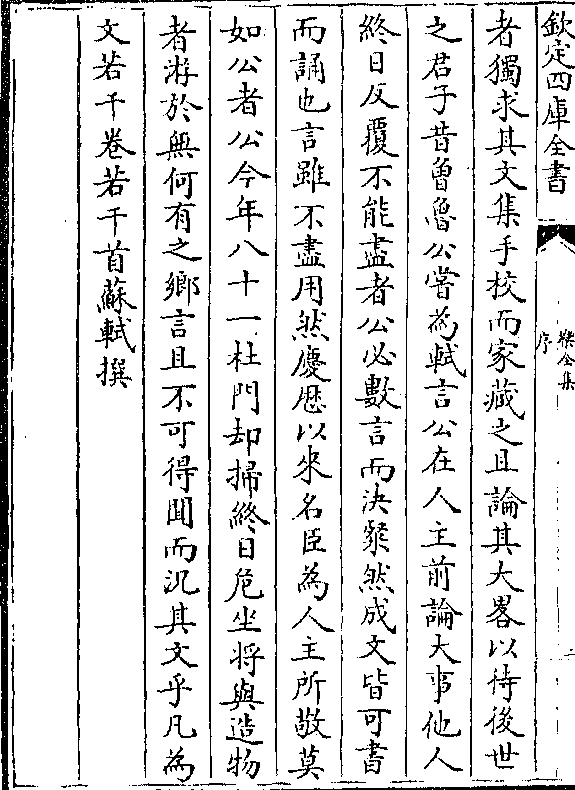 欽定四庫全書
樂全集
序
二
者獨求其文集手校而家藏之且論其大畧以待後世
之君子昔曾魯公嘗為軾言公在人主前論大事他人
終日反覆不能盡者公必數言而決粲然成文皆可書
而誦也言雖不盡用然慶厯以來名臣為人主所敬莫
如公者公今年八十一杜門却掃終日危坐将與造物
者游於無何有之鄉言且不可得聞而況其文乎凡為
文若干卷若干首蘇軾撰